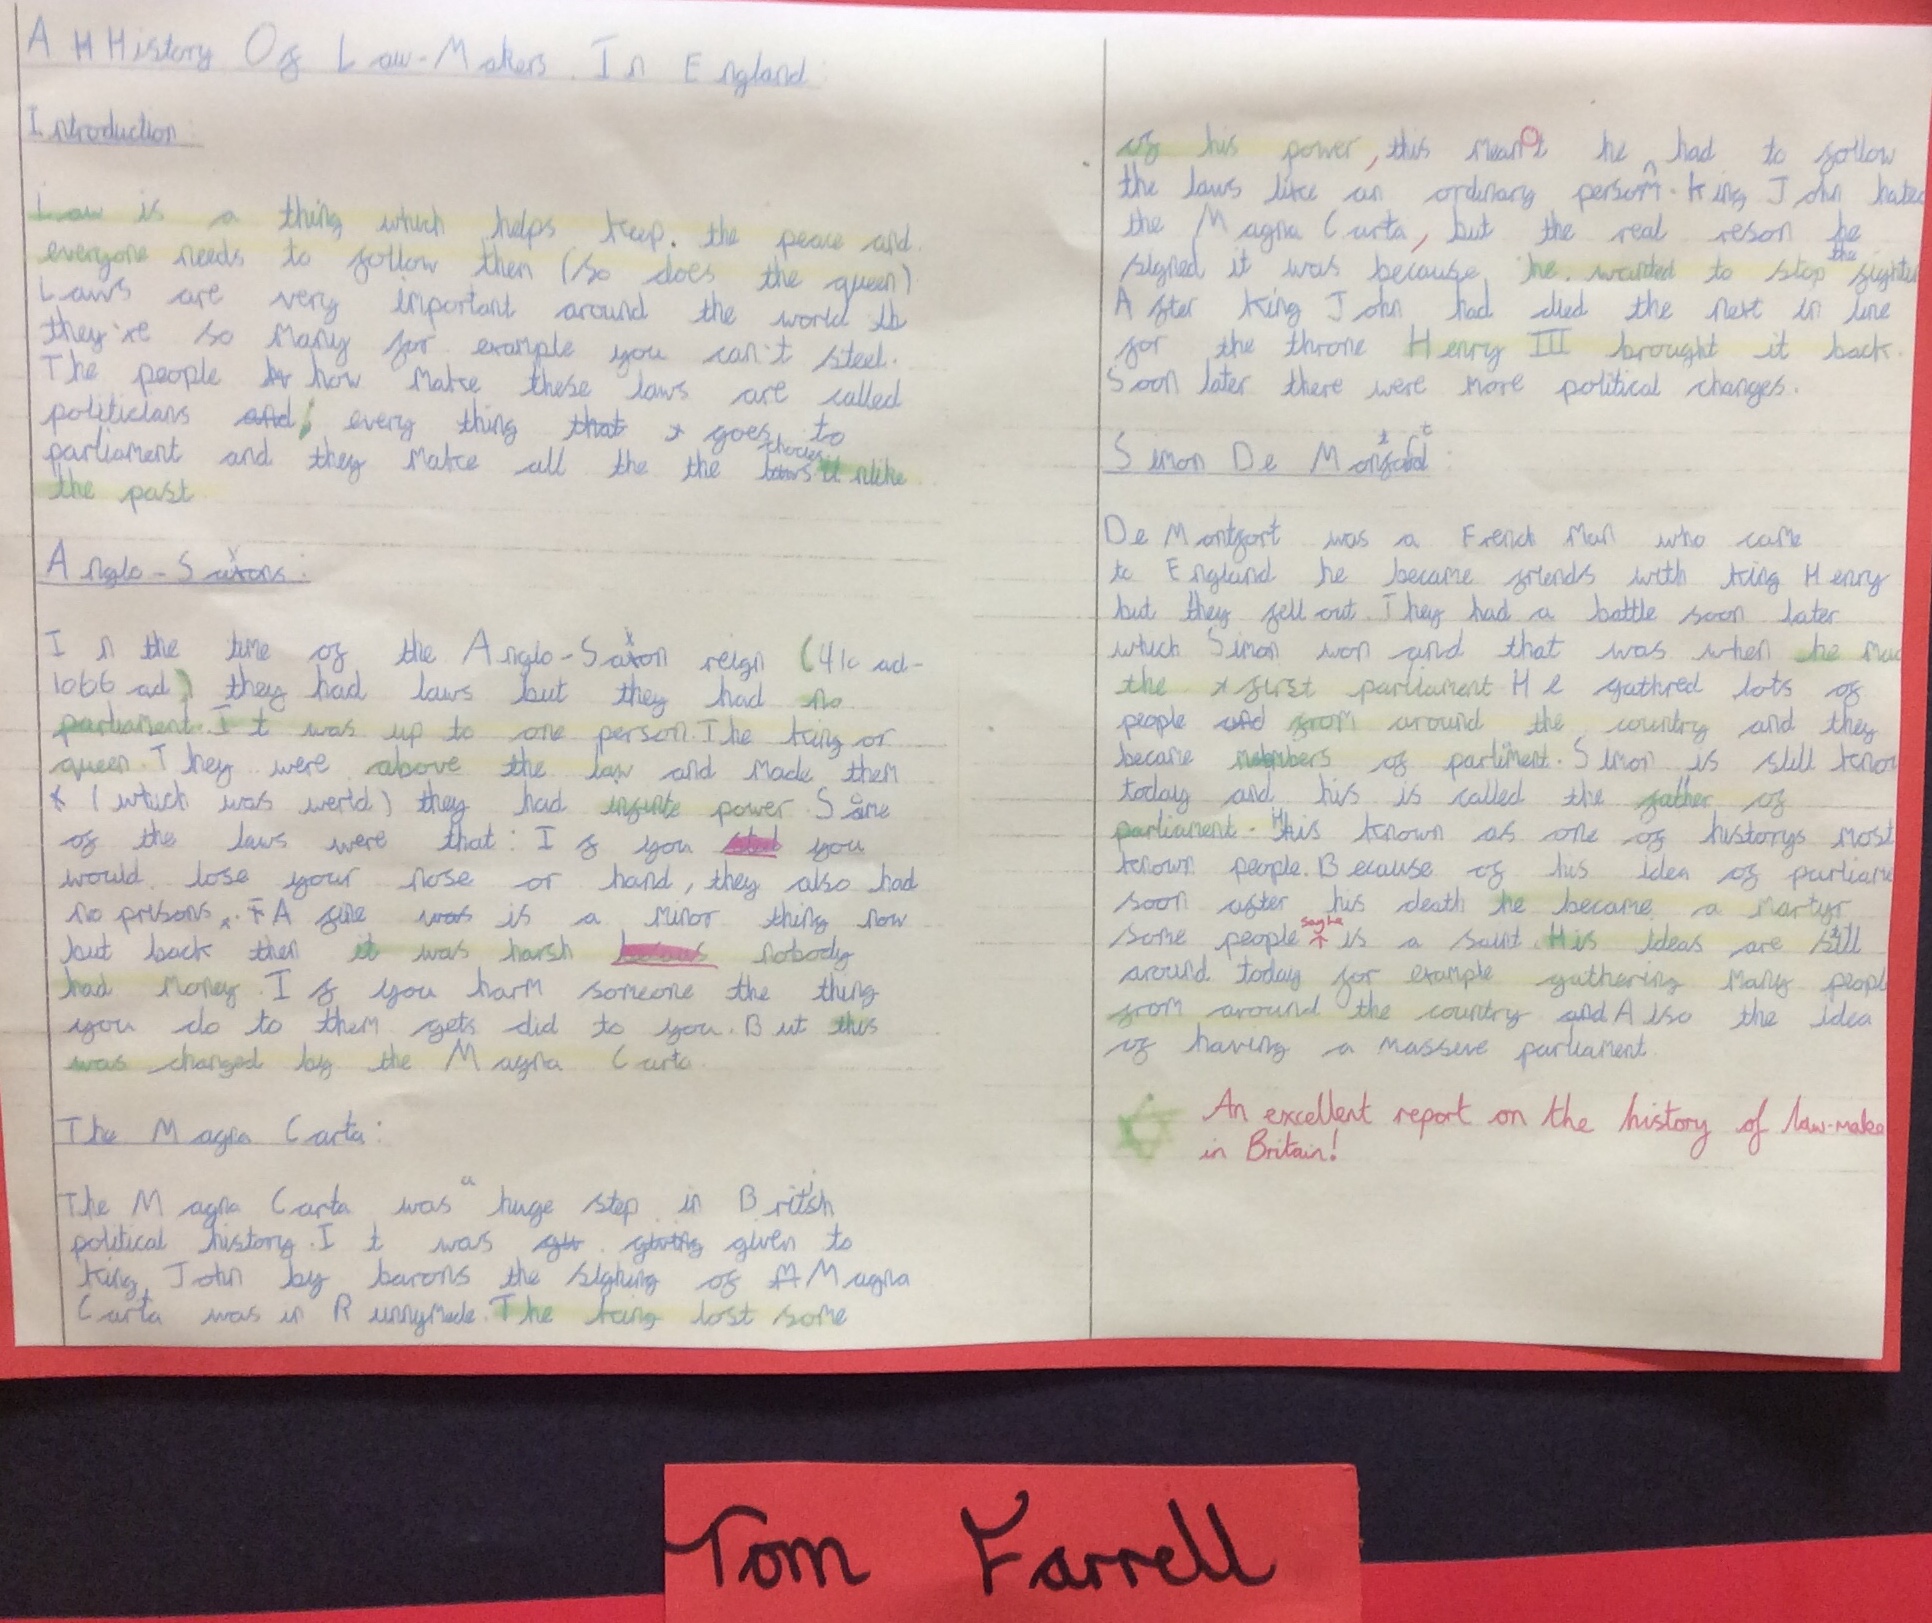 A History Of Law-Makers In England
Introduction:
Law is a thing which helps keep the peace and
everyone needs to follow them (so does the queen)
Laws are very important around the world
they're so many for example you can't steel.
The people how make these laws are called
politicians every thing goes to
parliament and they make all the the unlike
the past
Anglo-Saxons:
In the time of the Anglo-Saxon reign (410 ad-
1066 ad) they had laws but they had no
parliament. It was up to one person. The king or
queen. They were above the law and made them
(which was werld) they had infinite power. Some
of the laws were that: If you you
would lose your nose or hand, they also had
no prisons. A fine is a minor thing now
but back then it was harsh nobody
had money. If you harm someone the thing
you do to them gets did to you. But this
was changed by the Magna Carta.
The Magna Carta:
The Magna Carta was a huge step in British
political history. It was given to
King John by barons the signing of Magna
Carta was in Runnymede. The king lost some
of his power, this meant he had to follow
the laws like an ordinary person. King John hated
the Magna Carta, but the real reson he
signed it was because he wanted to stop the
After King John had died the next in line
for the throne Henry III brought it back.
Soon later there were more political changes.
Simon De Montfort:
De Montfort was a French man who came
to England he became friends with king Henry
but they fell out. They had a battle soon later
which Simon won and that was when he
the first parliament. He gathred lots of
people from around the country and they
became members of parliment. Simon is still
today and his is called the father of
parliament. His known as one of historys most
known people. Because of his idea of
soon after his death he became a martyr
some people say he is a saint. His ideas are still
around today for example gathering many
from around the country Also the idea
of having a massive parliament.
An excellent report on the history of law-make
in Britain!
Tom Farrell